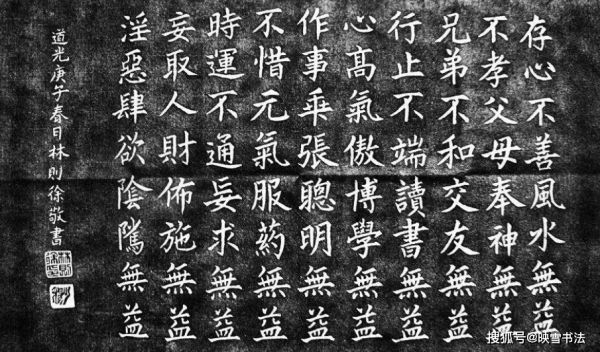 存心不善風水無益
不孝父母奉神無益
兄弟不和交友無益
行止不端讀書無益
心髙氣傲博學無益
作事乖張聰明無益
不惜元氣服葯無益
時運不通妄求無益
妄取人財佈施無益
淫惡肆欲陰騭無益
道光庚午春日林則徐敬書
搜狐号@映雪书法